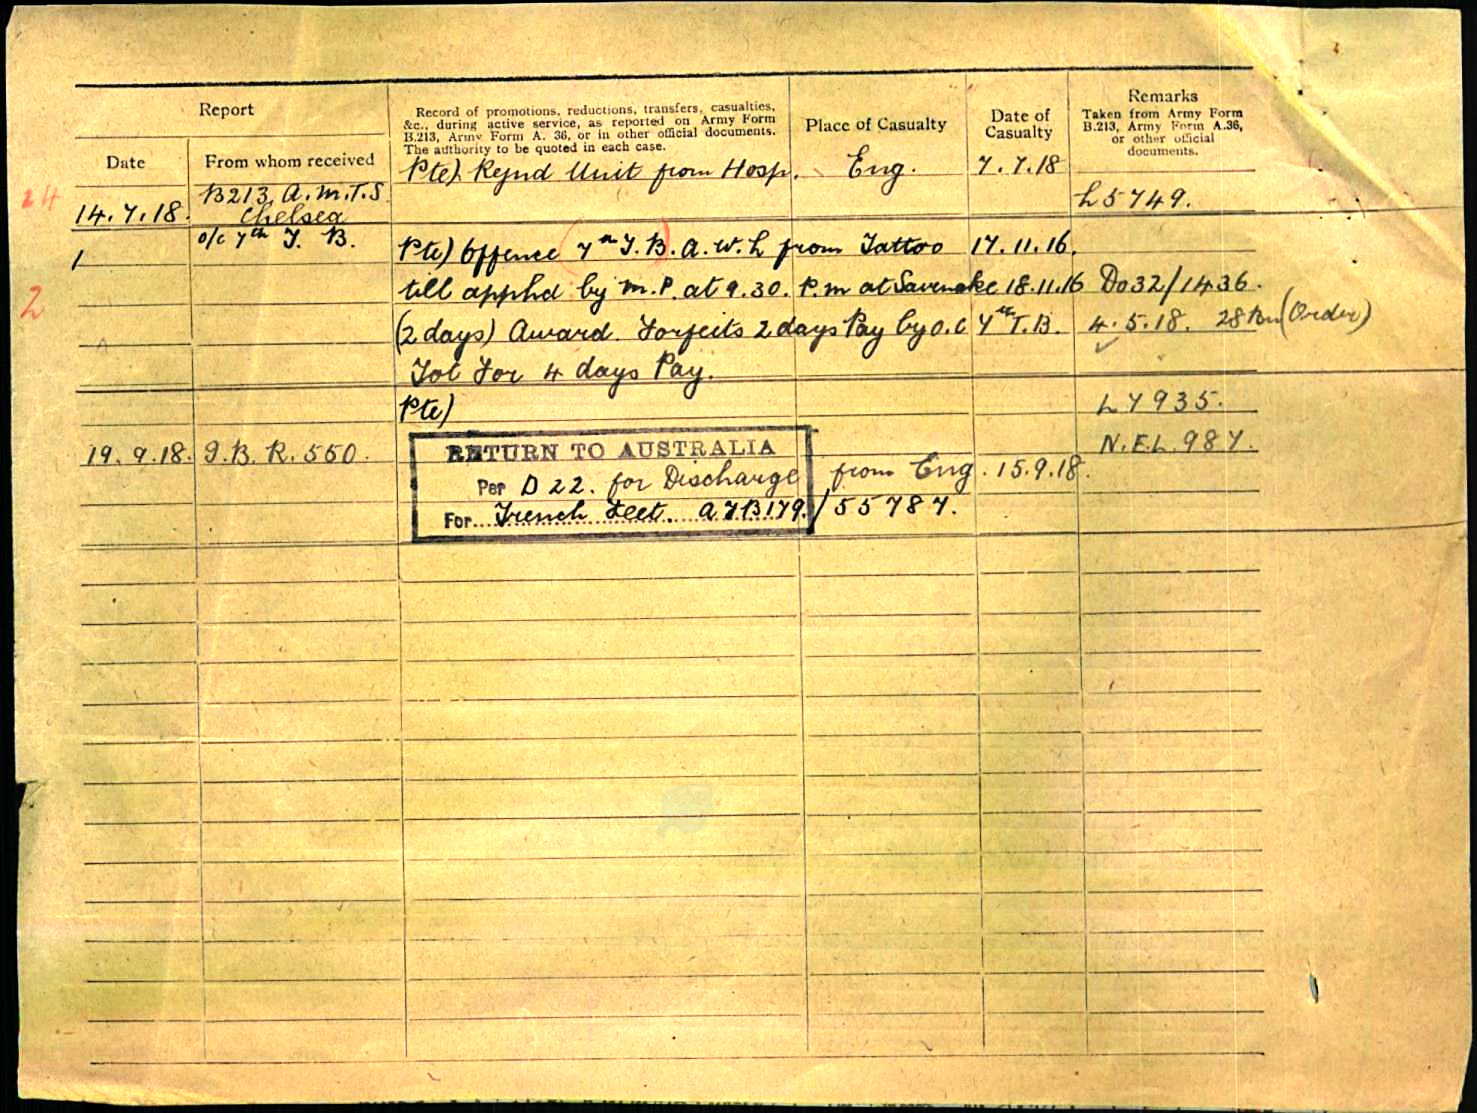 Report
Record of promotions, reductions, transfers, casualties,
&c., during active service, as reported on Army Form
B.213, Army Form A. 36, or in other official documents.
The authority to be quoted in each case.
Place of Casualty
Date of
Casualty
Remarks
Taken from Army Form
B.213, Army Form A.36,
or other official
documents.
Date
From whom received
Pte) Rejnd Unit from Hosp. Eng. 7.7.18
24
14.7.18. B213. A.M.T.S
Chelsea
L5749.
1
o/c 7th T. B.
Pte) Offence 7th T.B. A.W.L from Tattoo 17.11.16.
till apphd by M.P. at 9.30. P.m at 18.11.16 Do32/1436.
2
(2 days) Award. Forfeits 2 days Pay by O.C 7th T.B. 4.5.18. 28Bn (Order)
Tot For 4 days Pay.
Pte)
L7935.
N.E.L. 987.
19.9.18. J.B.R. 550.
RETURN TO AUSTRALIA
Per D 22. for Discharge from Eng. 15.9.18.
For Trench Feet. A7B179./55787.